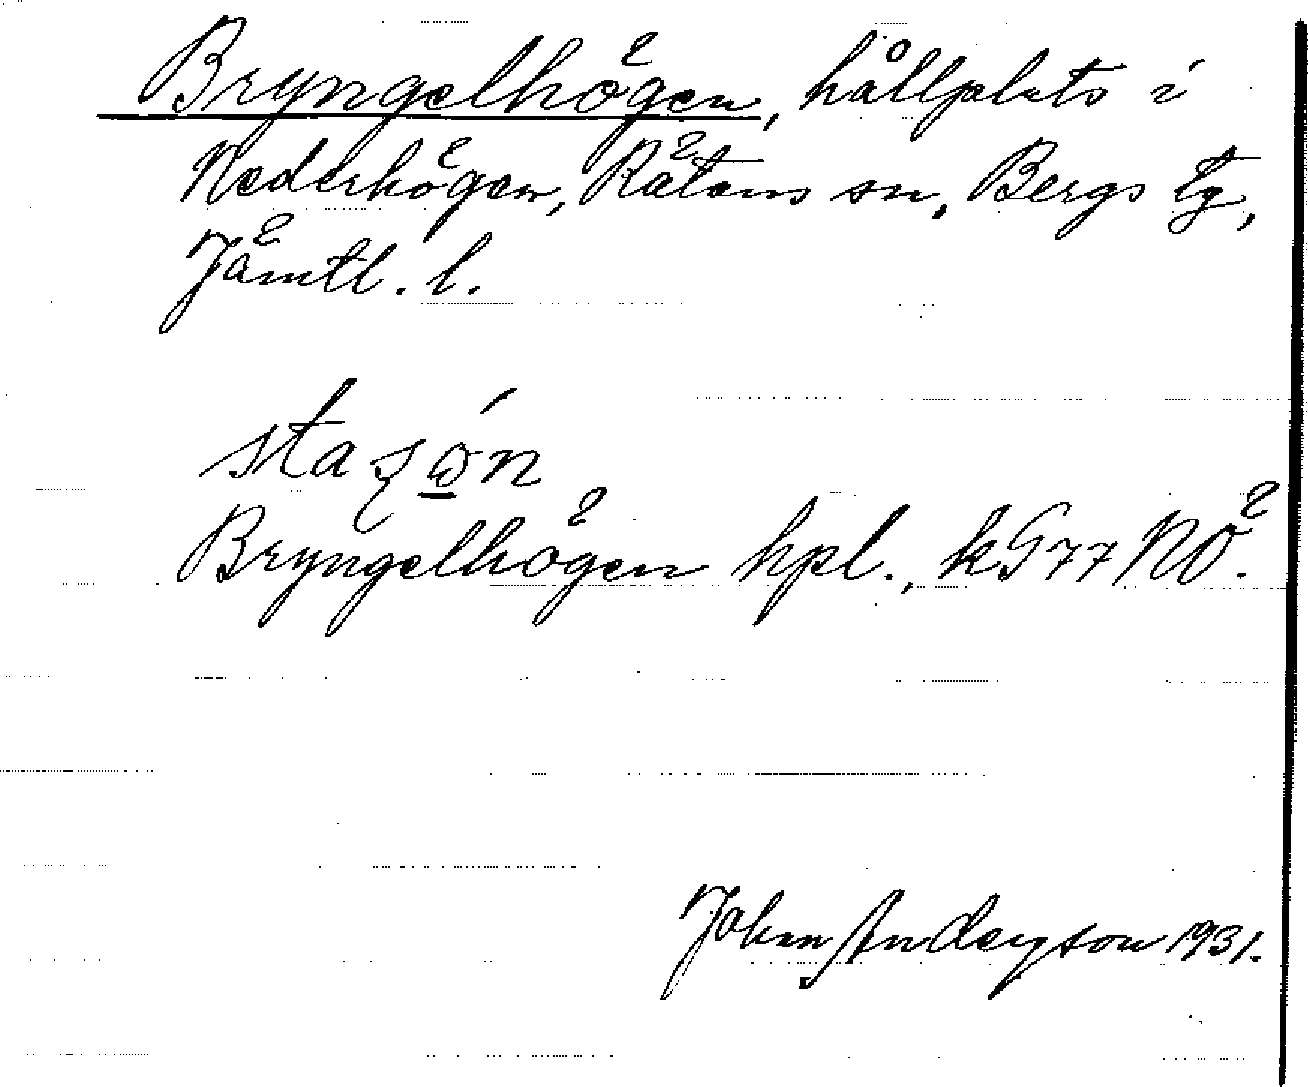 Bryngelhögen, hållplats i
Nederhögen, Rätans sn, Bergs tg,
Jämtl. l.
Bryngelhögen hpl., kG77NÖ.
Johan Anderson 1931.